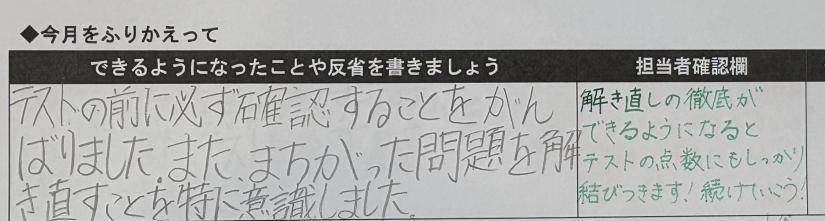 ◆今月をふりかえって
できるようになったことや反省を書きましょう
担当者確認欄
テストの前に必ず確認することをがん
ばりました。また、まちがった問題を解
き直すことを特に意識しました。
解き直しの徹底が
できるようになると
テストの点数にもしっかり
結びつきます!続けていこう!